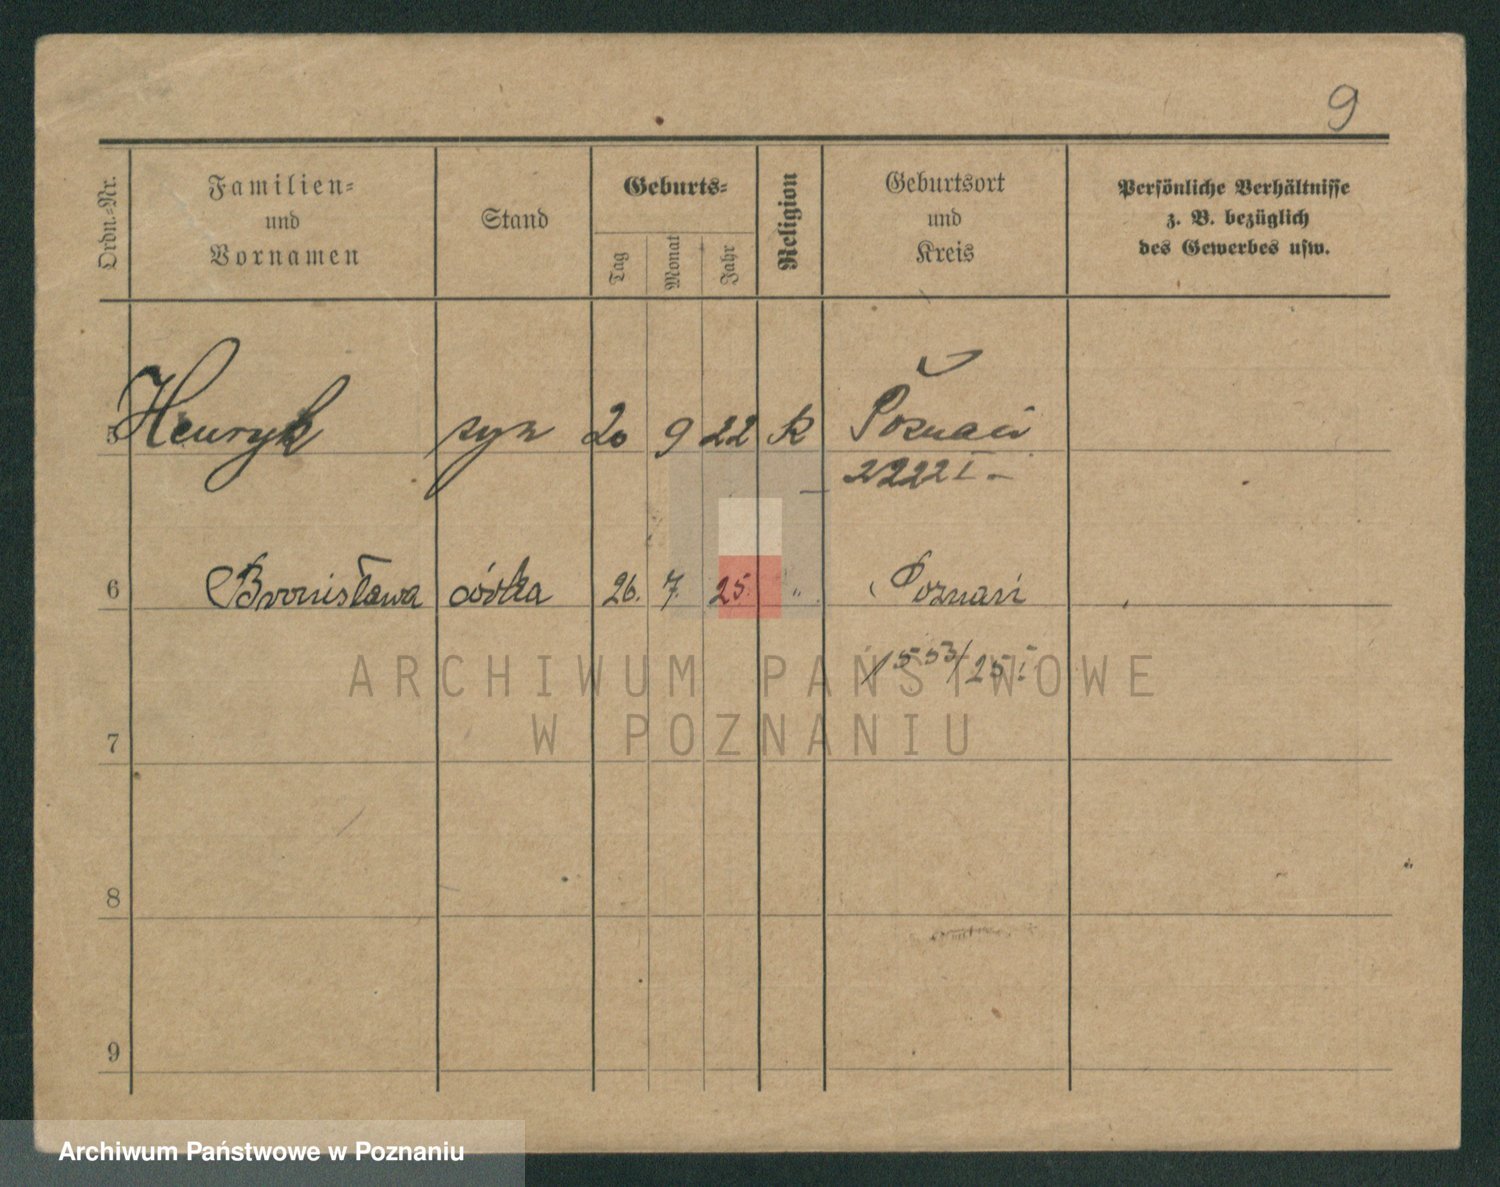 9
Ordn.-Nr.
Familien-
und
Vornamen
Stand
Geburts-
Tag
Monat
Jahr
Religion
Geburtsort
und
Kreis
Persönliche Verhältnisse
z. B. bezüglich
des Gewerbes usw.
5 Henryk syn 20 9 22 K Poznań
2222 I -
6 Bronisława córka 26. 7. 25. " Poznań
1553/25 I
ARCHIWUM PAŃSTWOWE
W POZNANIU
7
8
9
Archiwum Państwowe w Poznaniu